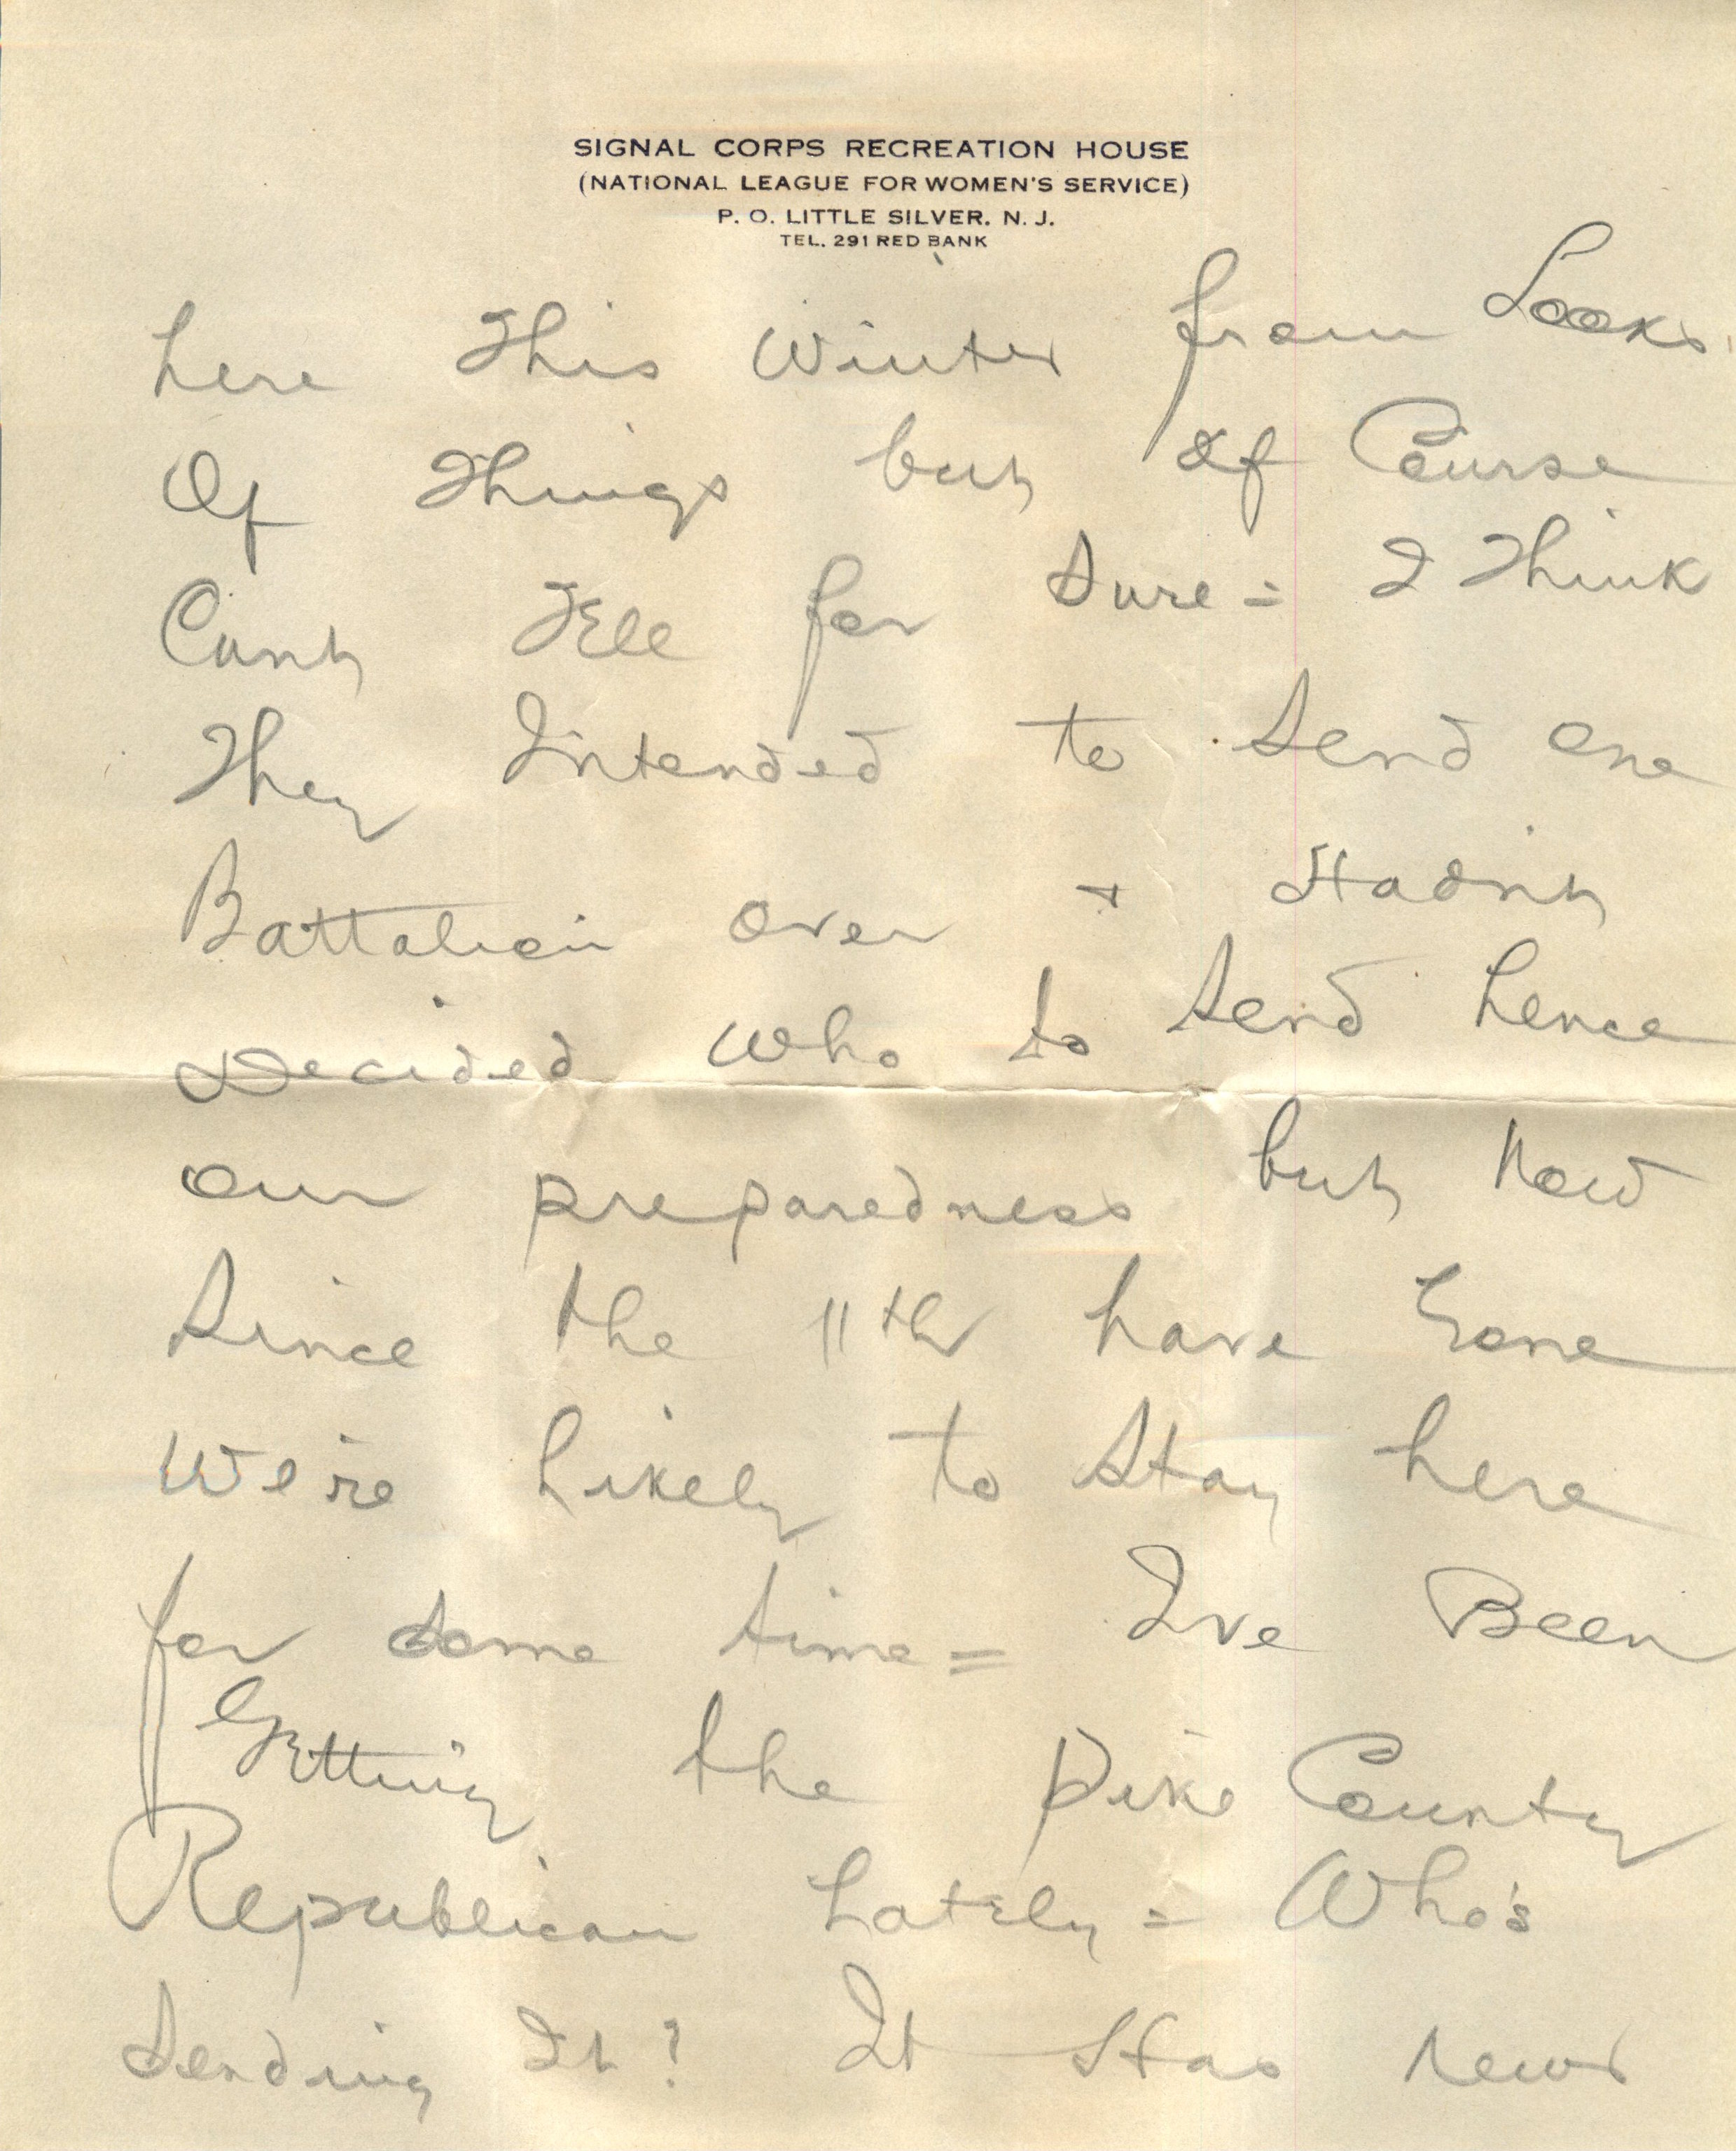 SIGNAL CORPS RECREATION HOUSE
(NATIONAL LEAGUE FOR WOMEN'S SERVICE)
P. O. LITTLE SILVER. N. J.
TEL. 291 RED BANK
here This Winter from Looks
Of Things but Of Course
Cant Tell for Sure = I Think
They Intended to Send one
Battalion over + Hadn't
Decided Who to Send hence
our preparedness but Now
Since the 11th have Gone
We're Likely to Stay here
for Some time = Ive Been
Getting the Pike County
Republican Lately = Who's
Sending It? It Has News